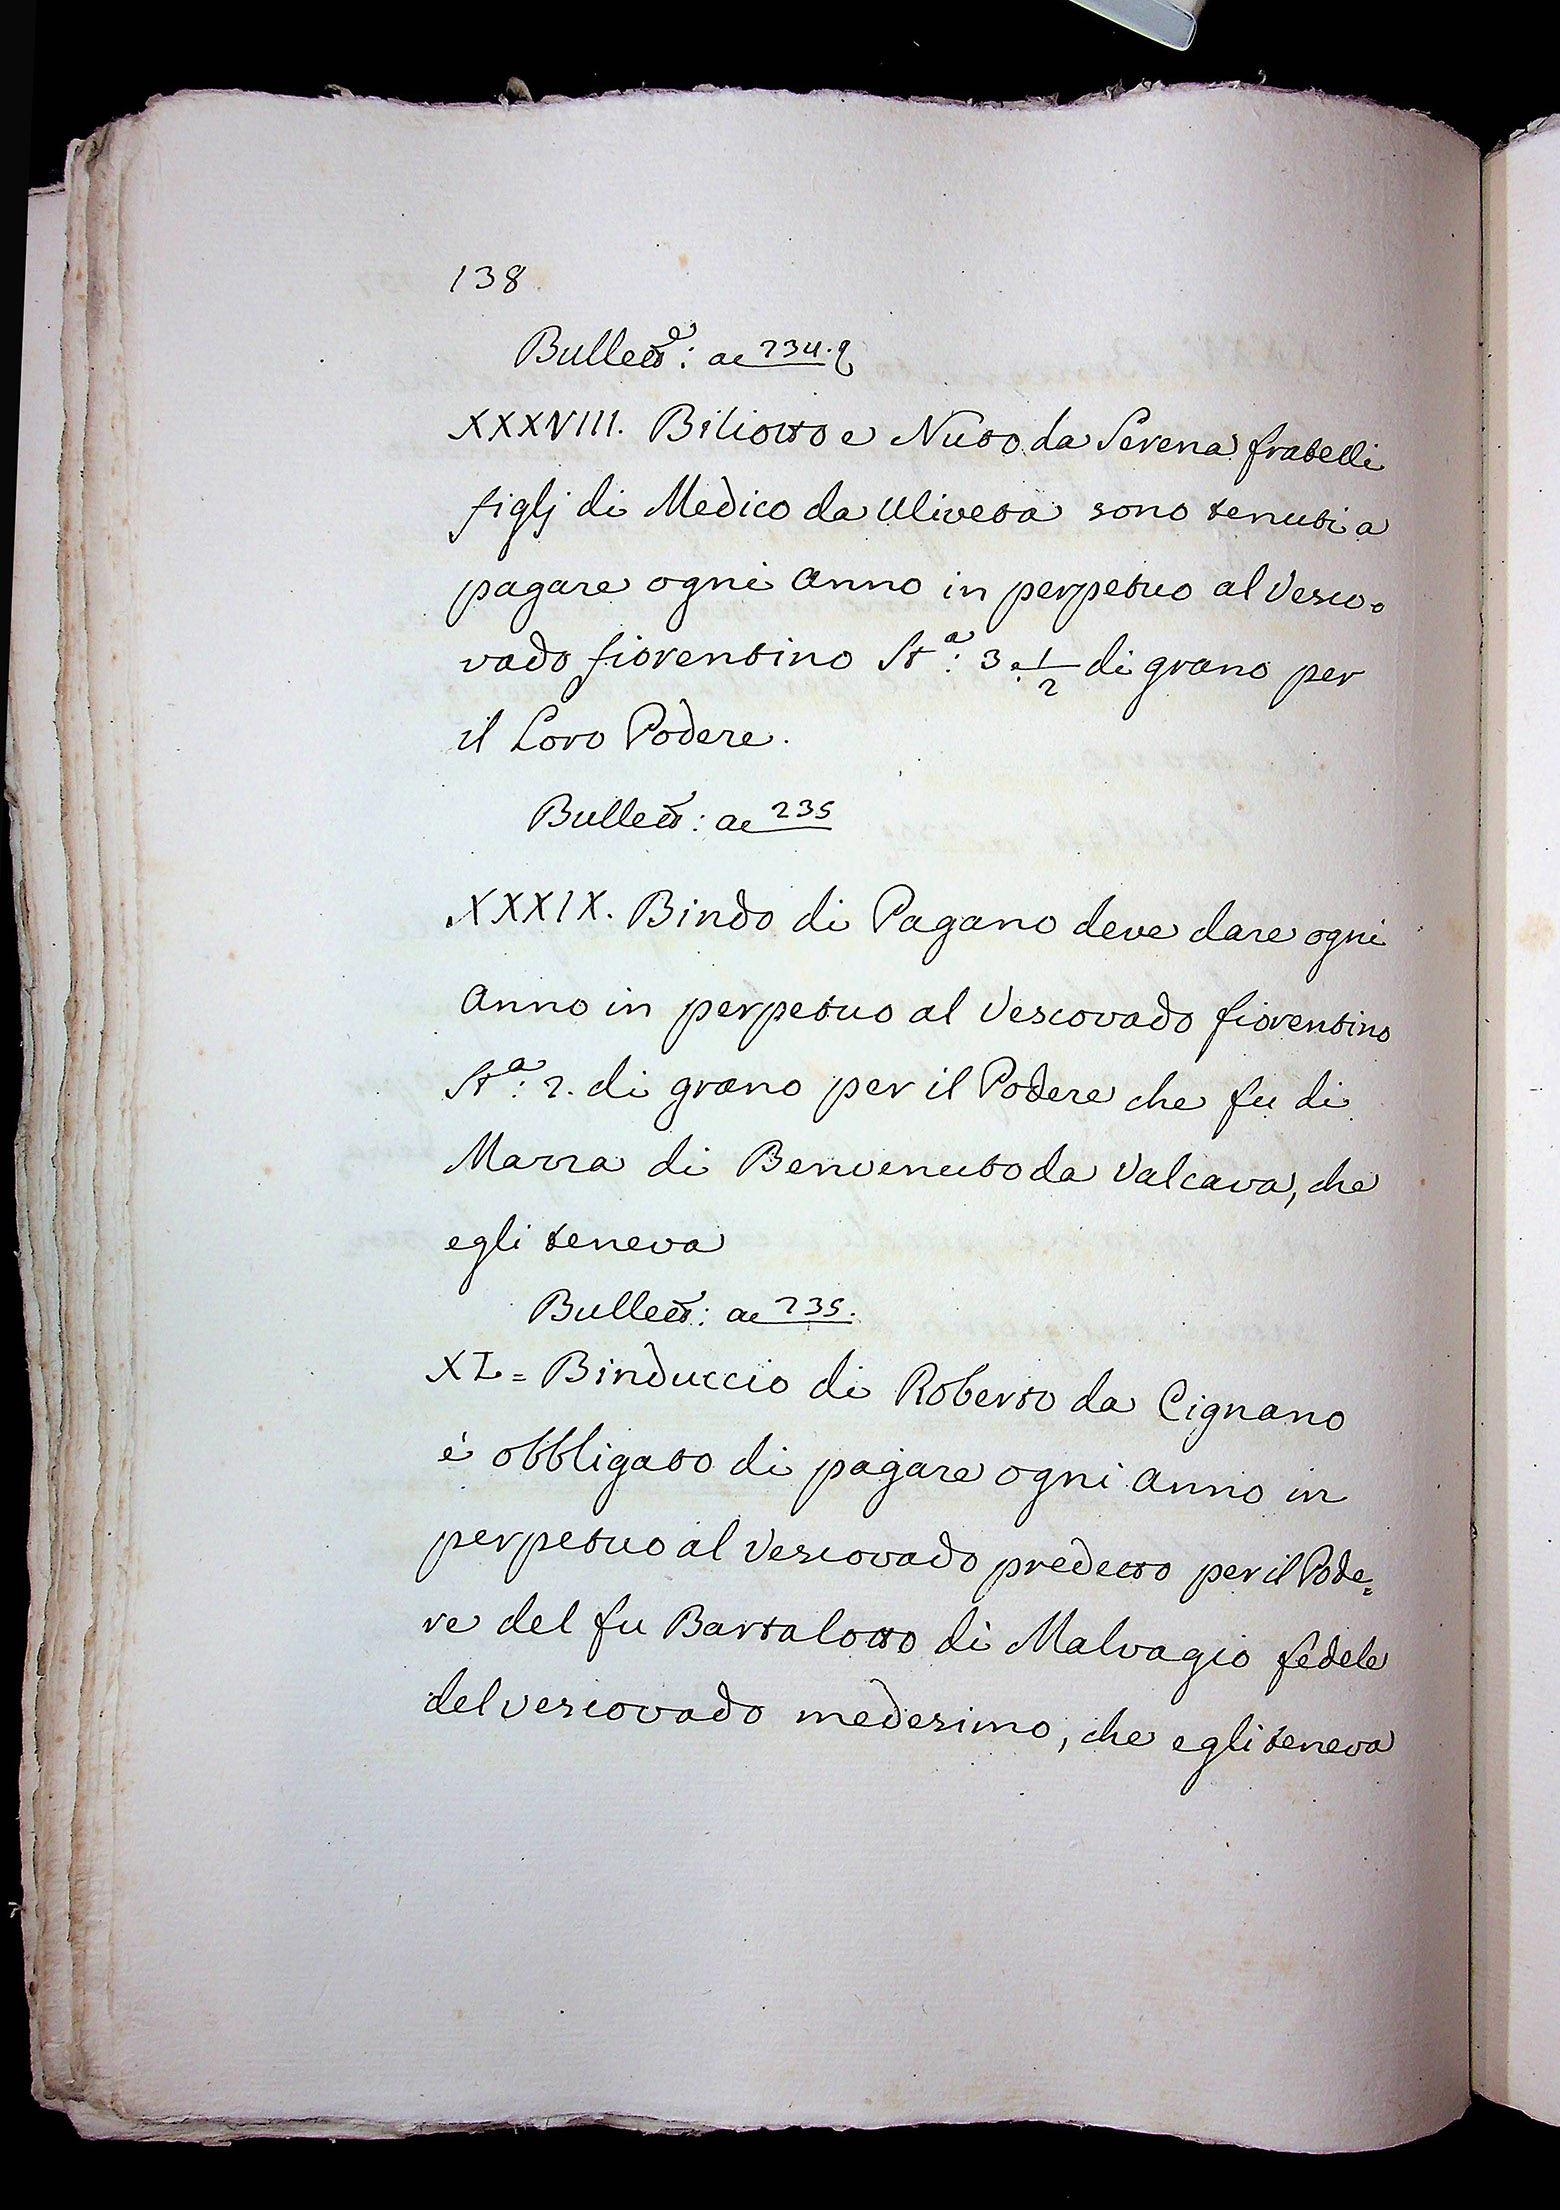 138
Bullett.e: ac 234.
XXXVIII. Biliotto e Nuto da Serena fratelli
figlj di Medico da Uliveta sono tenuti a
pagare ogni Anno in perpetuo al Vesco=
vado fiorentino St.a: 3. 1/2 di grano per
il Loro Podere.
Bullett: ac 235
XXXIX. Bindo di Pagano deve dare ogni
Anno in perpetuo al Vescovado fiorentino
St.a: 2. di grano per il Podere che fu di
di Benvenuto da Valcava, che
egli teneva
Bullett: ac 235.
XL = Binduccio di Roberto da Cignano
è obbligato di pagare ogni anno in
perpetuo al Vescovado predetto per il Pode=
re del fu Bartalotto di Malvagio fedele
del vescovado medesimo, che egli teneva